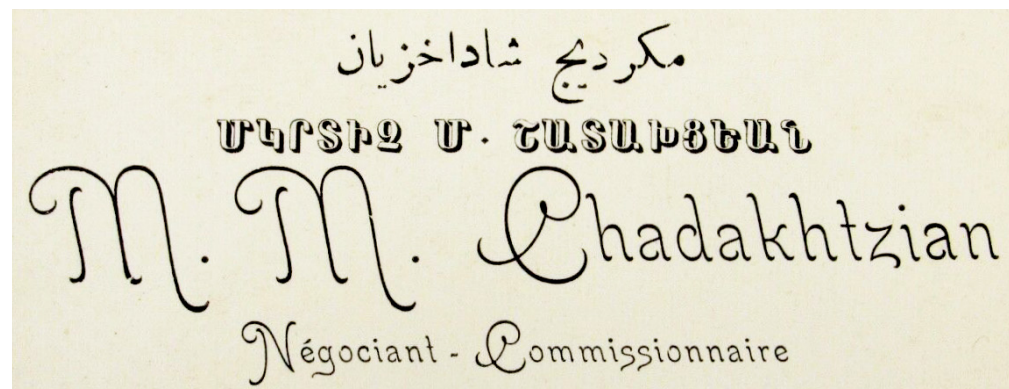 مكرديج شاداخزيان
ՄԿՐՏԻՉ Մ. ՇԱՏԱԽՑԵԱՆ
M. M. Chadakhtzian
Négociant - Commissionnaire